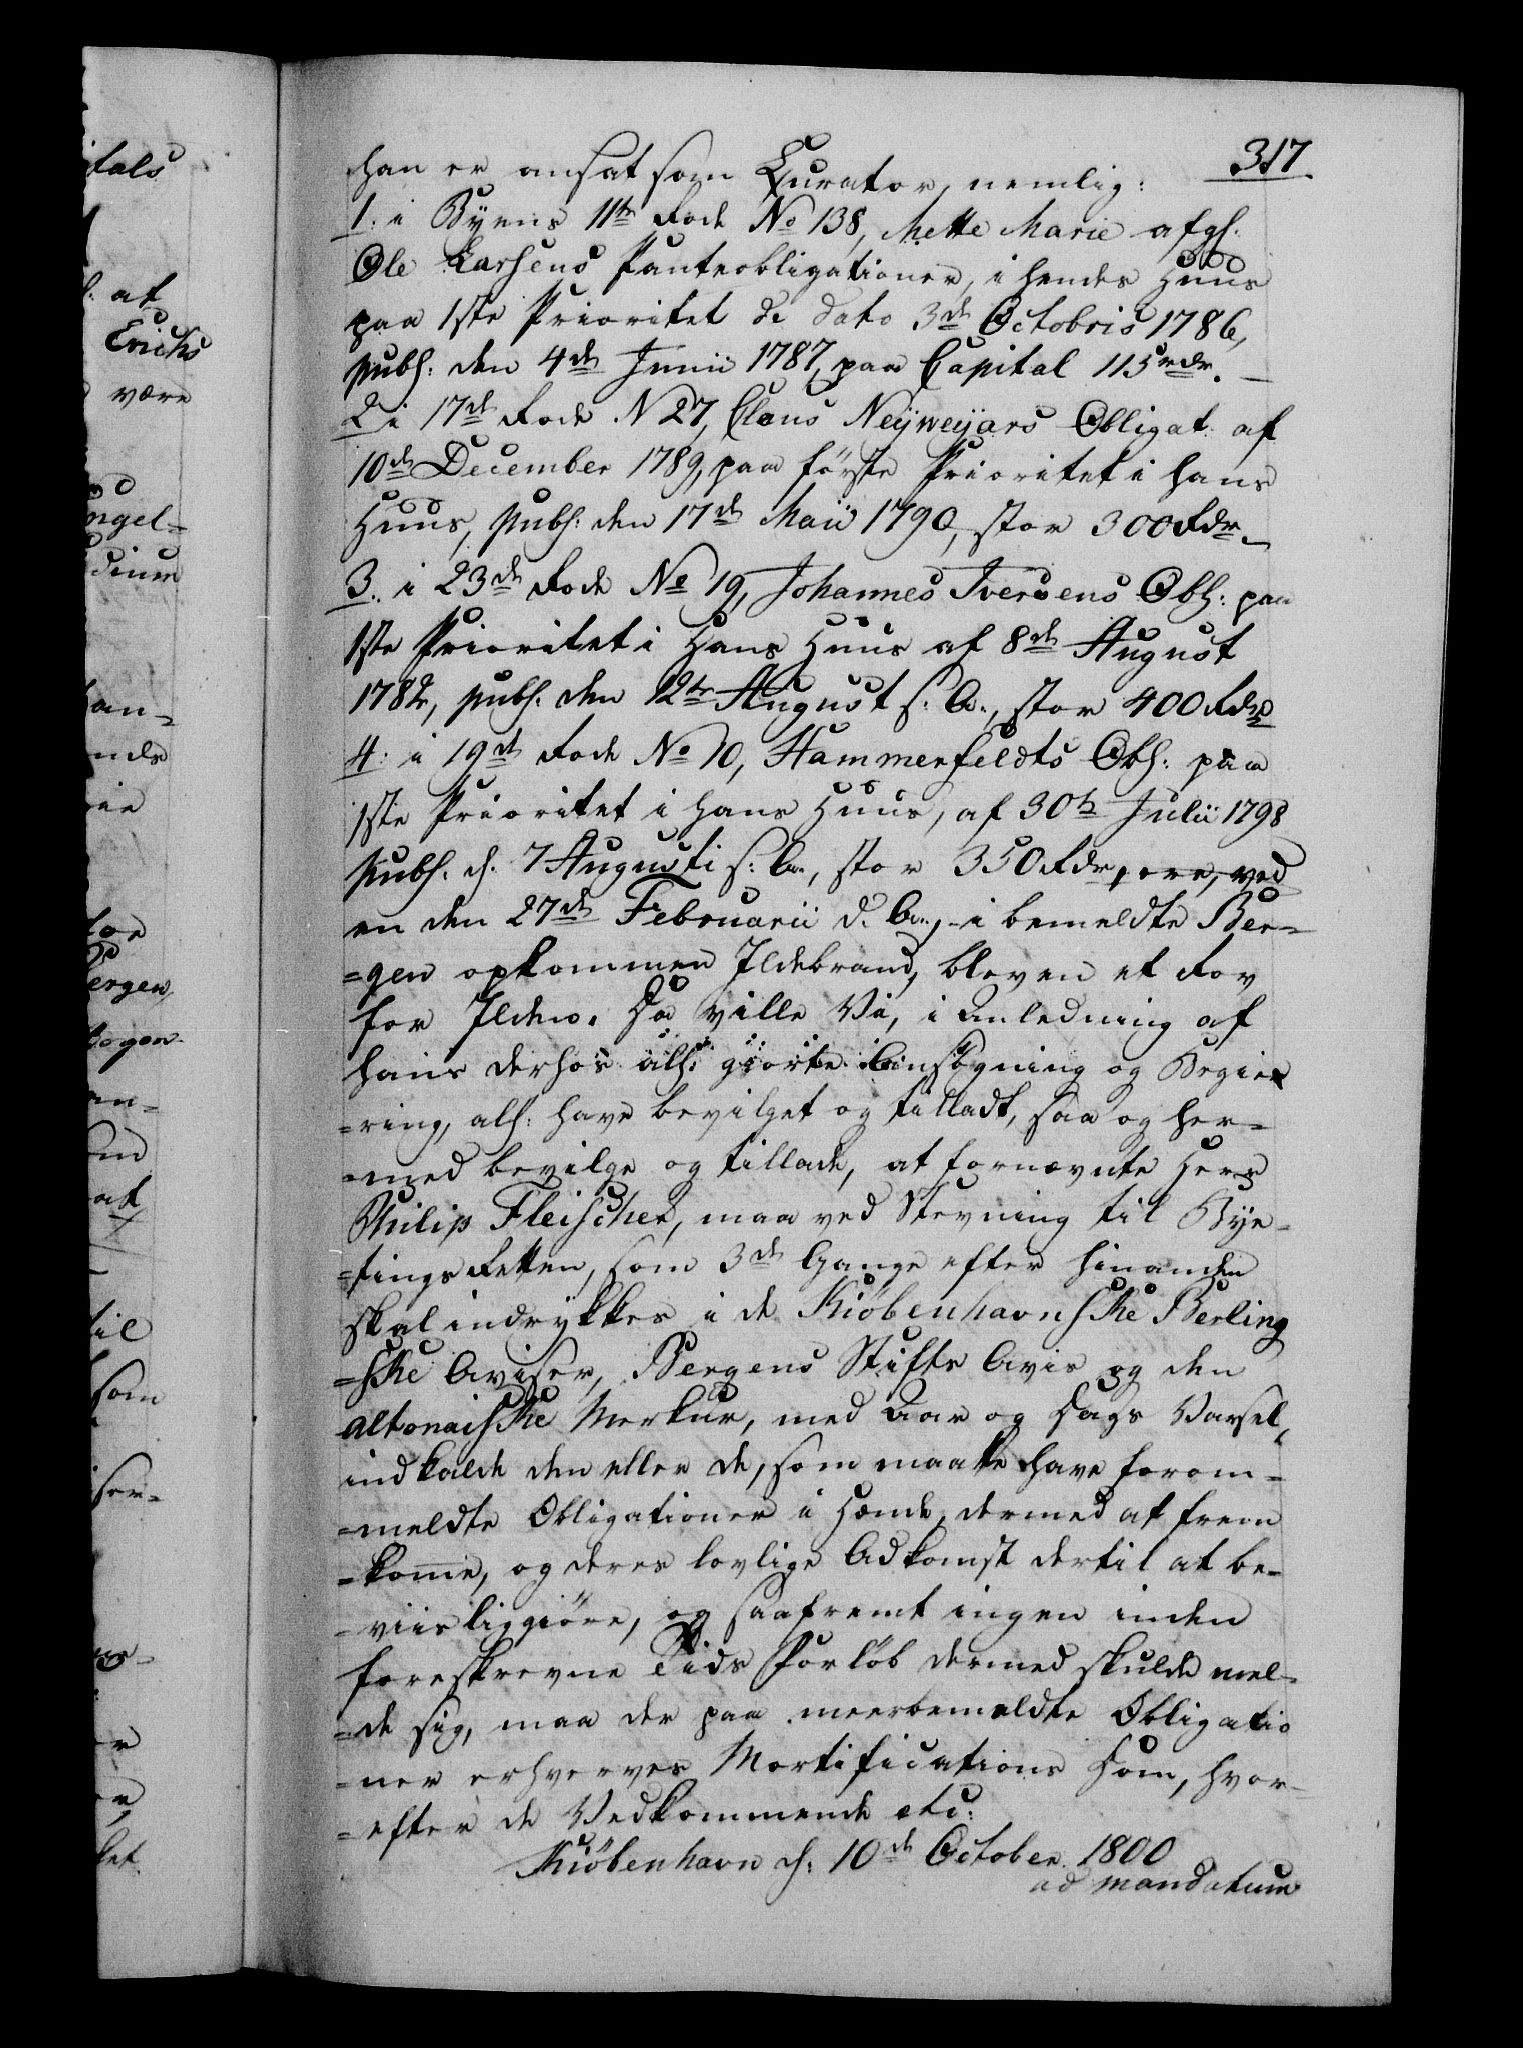 317
han er ansat som Curator, nemlig:
1: i Byens 11te Rode No 138, Mette Marie afgl:
Ole Larsens Panteobligationer, i hendes Huus
paa 1ste Prioritet de dato 3de Octobris 1786,
publ: den 4de Junii 1787, paa Capital 115rdr. —
2 i 17de Rode N 27, Claus Neÿweÿars Obligat: af
10de December 1789, paa første Prioritet i hans
Huus, publ: den 17de Maii 1790, stor 300 Rdr. —
3. i 23de Rode No 19, Johannes Iversens Obl: paa
1ste Prioritet i Hans Huus af 8de August
1782, publ. den 12te August s: A:, stor 400 Rdr
4: i 19de Rode No 10, Hammerfeldts Obl: paa
1ste Prioritet i hans Huus, af 30te Julii 1798
publ. d. 7 Augusti s: A:, stor 350 Rdr, ere, ved
en den 27de Februarii d. A:, i bemeldte Ber-
=gen opkommen Ildebrand, bleven et Rov
for Ilden. Da ville Vi, i Anledning af
hans derhos all: giorte Ansøgning og Begie-
=ring, all: have bevilget og tilladt, saa og her-
-med bevilge og tillade, at fornævnte Herr
Philip Fleischer, maa ved Stevning til Bye-
=tings Retten, som 3de Gange efter hinanden
skal indrykkes i de Kiøbenhavnske Berling
=ske Aviser, Bergens Stifts Avis og den
altonaiske Merkur, med Aar og Dags Varsel,
indkalde den eller de, som maatte have forom-
=meldte Obligationer i Hænde, dermed at frem
=komme, og deres lovlige Adkomst dertil at be-
-viisliggiøre, og saafremt ingen inden
foreskrevne Tids Forløb dermed skulde mel-
=de sig, maa der paa meerbemeldte Obligatio
=ner erhverves Mortifications Dom, hvor-
=efter de Vedkommende etc:
Kiøbenhavn d: 10de October 1800
ad mandatum
tals
at
Erichs
være
ngel=
dium
han=
ende
ergen,
an=
om
at
til
som
iser=